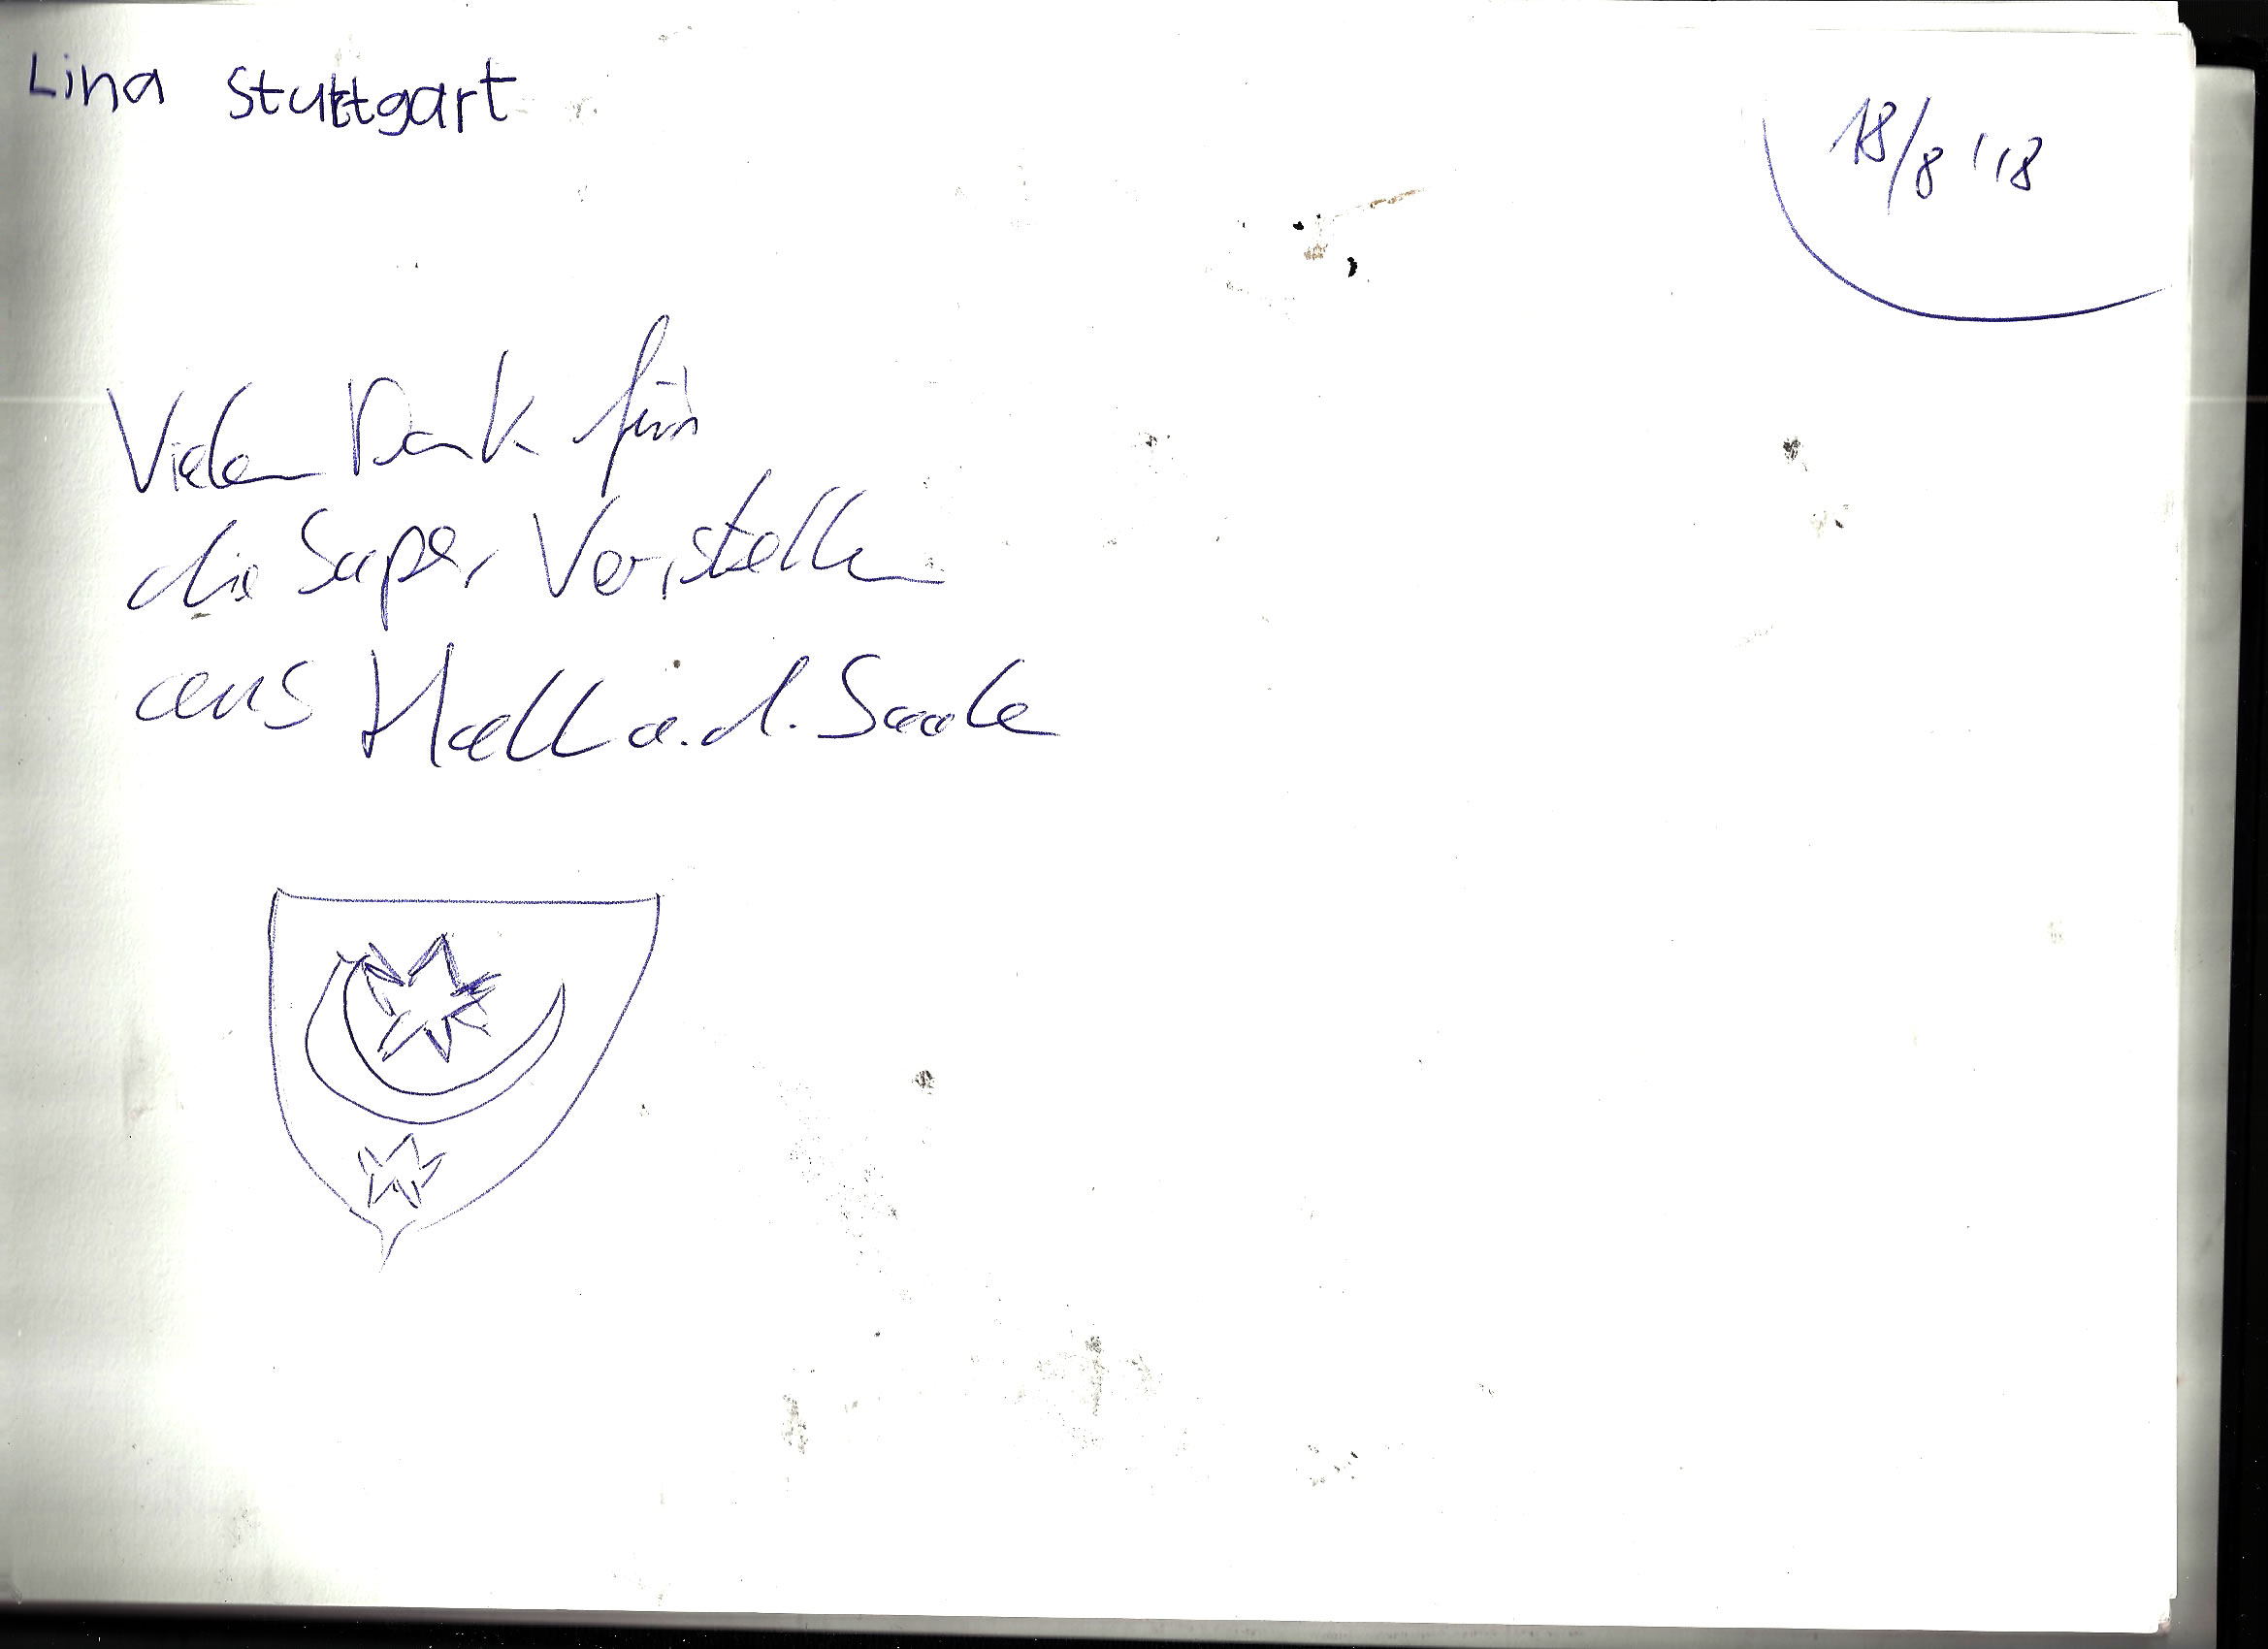 Lina Stuttgart
18/8 '18
Vielen Dank für
die Super Vorstellen
aus Hall a.d. Saale